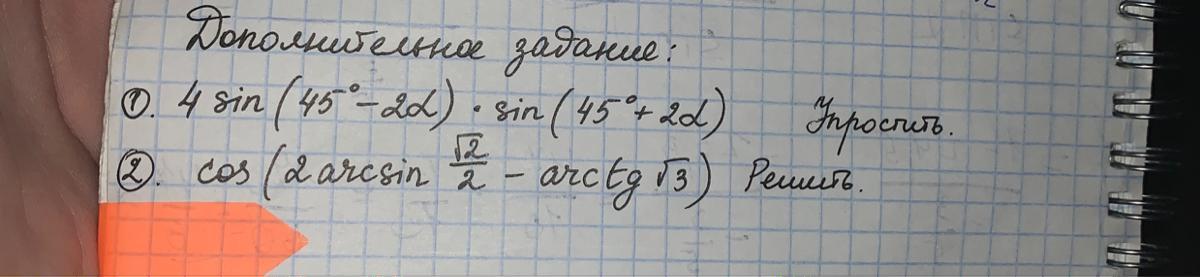 Дополнительное задание:
①. 4 sin (45° - 2α) · sin (45° + 2α) Упростить.
②. cos (2 arcsin √2/2 - arctg √3) Решить.